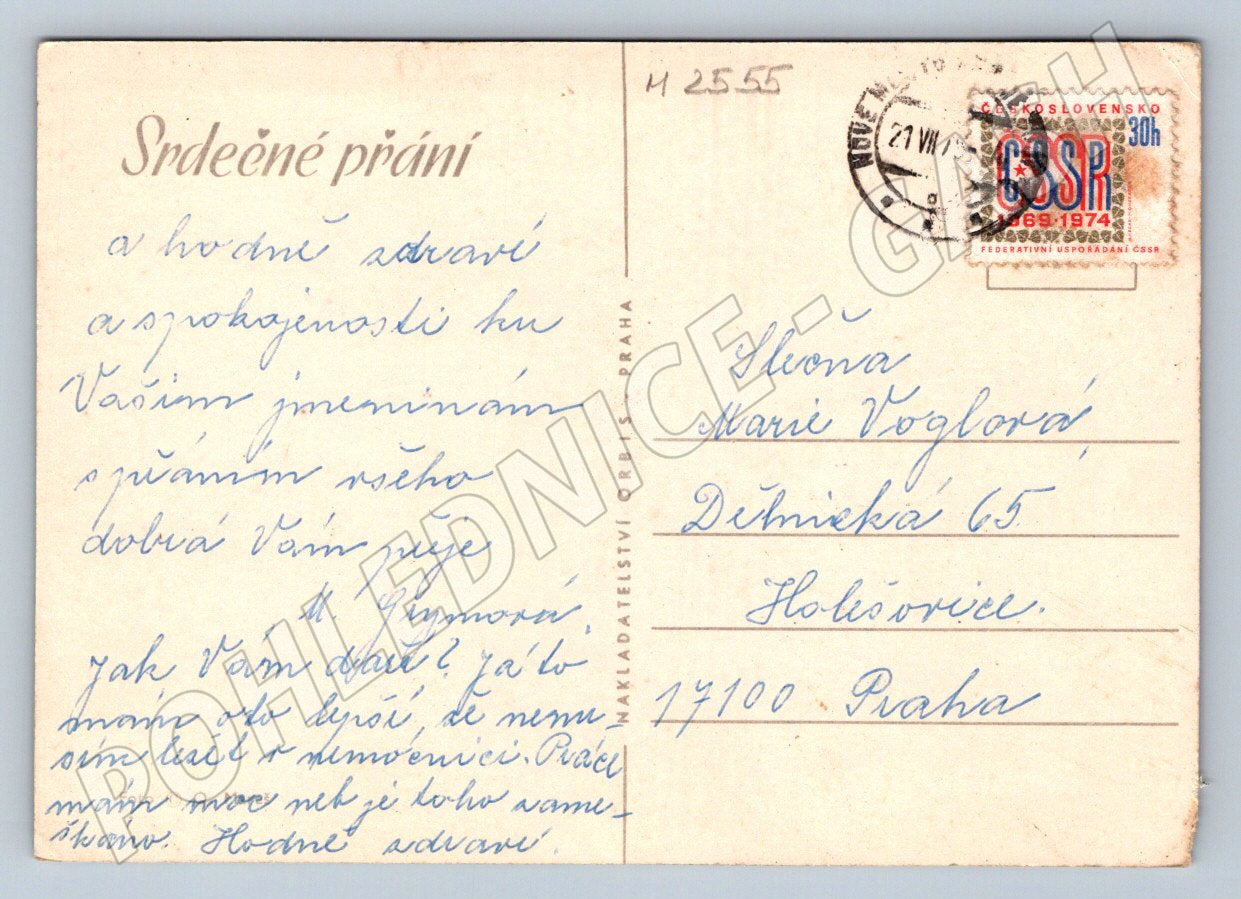 M 2555
Srdečné přání
a hodně zdraví
a spokojenosti ku
Vašim jmeninám
s přáním všeho
dobrá Vám přeje
M
Jak Vám daří? Já to
mám oto lepší, že nemu-
sím ležet v nemócnici. Práce
mám moc neb je toho zame-
škáno. Hodně zdraví.
NAKLADATELSTVÍ ORBIS - PRAHA
NOVE MĚSTO
21 VII
ČESKOSLOVENSKO
30h
ČSSR
1969·1974
FEDERATIVNÍ USPOŘÁDÁNÍ ČSSR
Slečna
Marie Voglová,
Dělnická 65
Holešovice.
17100 Praha
POHLEDNICE - GASH